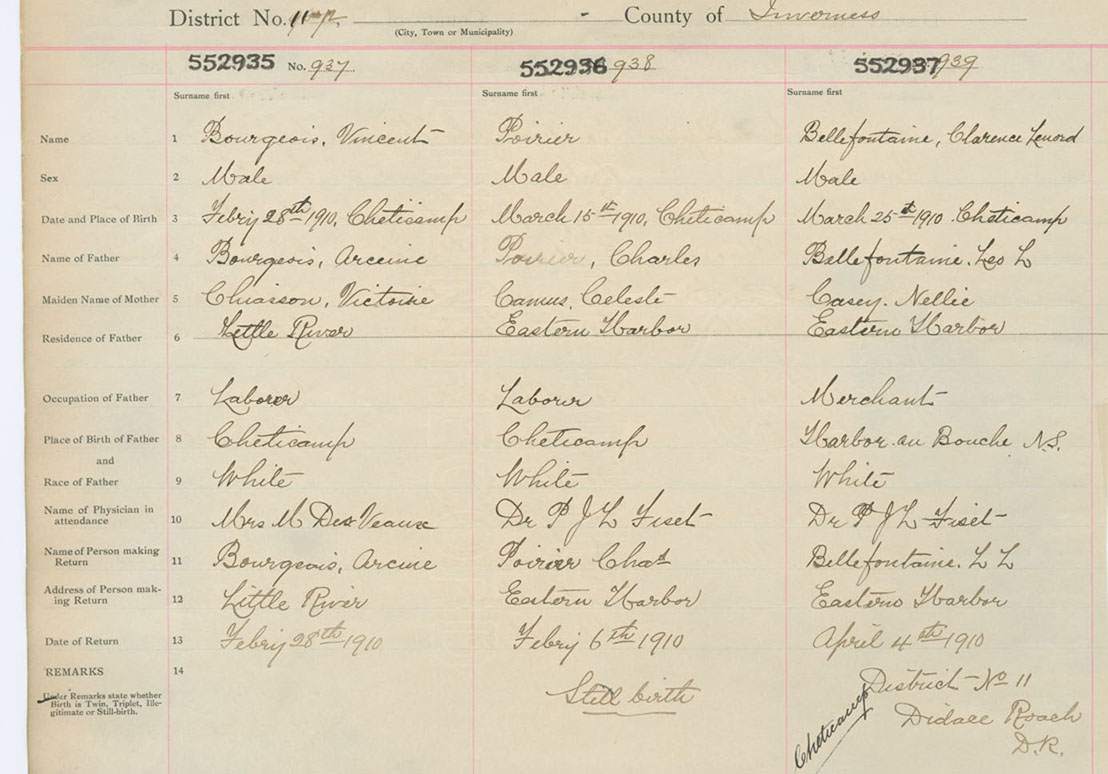 District No. 11 County of Inverness
(City, Town or Municipality)
552935 No. 937 552936 938 552937 939
Surname first Surname first Surname first
Name 1 Bourgeois, Vincent Poirier Bellefontaine, Clarence Lenord
Sex 2 Male Male Male
Date and Place of Birth 3 Febry 28th 1910, Cheticamp March 15th 1910, Cheticamp March 25th 1910 Cheticamp
Name of Father 4 Bourgeois, Arceine Poirier, Charles Bellefontaine. Leo L
Maiden Name of Mother 5 Chiasson, Victorie Camus, Celeste Casey. Nellie
Residence of Father 6 Little River Eastern Harbor Eastern Harbor
Occupation of Father 7 Laborer Laborer Merchant
Place of Birth of Father 8 Cheticamp Cheticamp Harbor au Bouche N.S.
and
Race of Father 9 White White White
Name of Physician in attendance 10 Mrs M Des Veaux Dr P J L Fiset Dr P J L Fiset
Name of Person making Return 11 Bourgeois, Arceine Poirier Chas Bellefontaine. L L
Address of Person making Return 12 Little River Eastern Harbor Eastern Harbor
Date of Return 13 Febry 28th 1910 Febry 6th 1910 April 4th 1910
REMARKS 14
Under Remarks state whether
Birth is Twin, Triplet, Ille-
gitimate or Still-birth.
Still birth
District No 11
Cheticamp
Didace Roach
D.R.